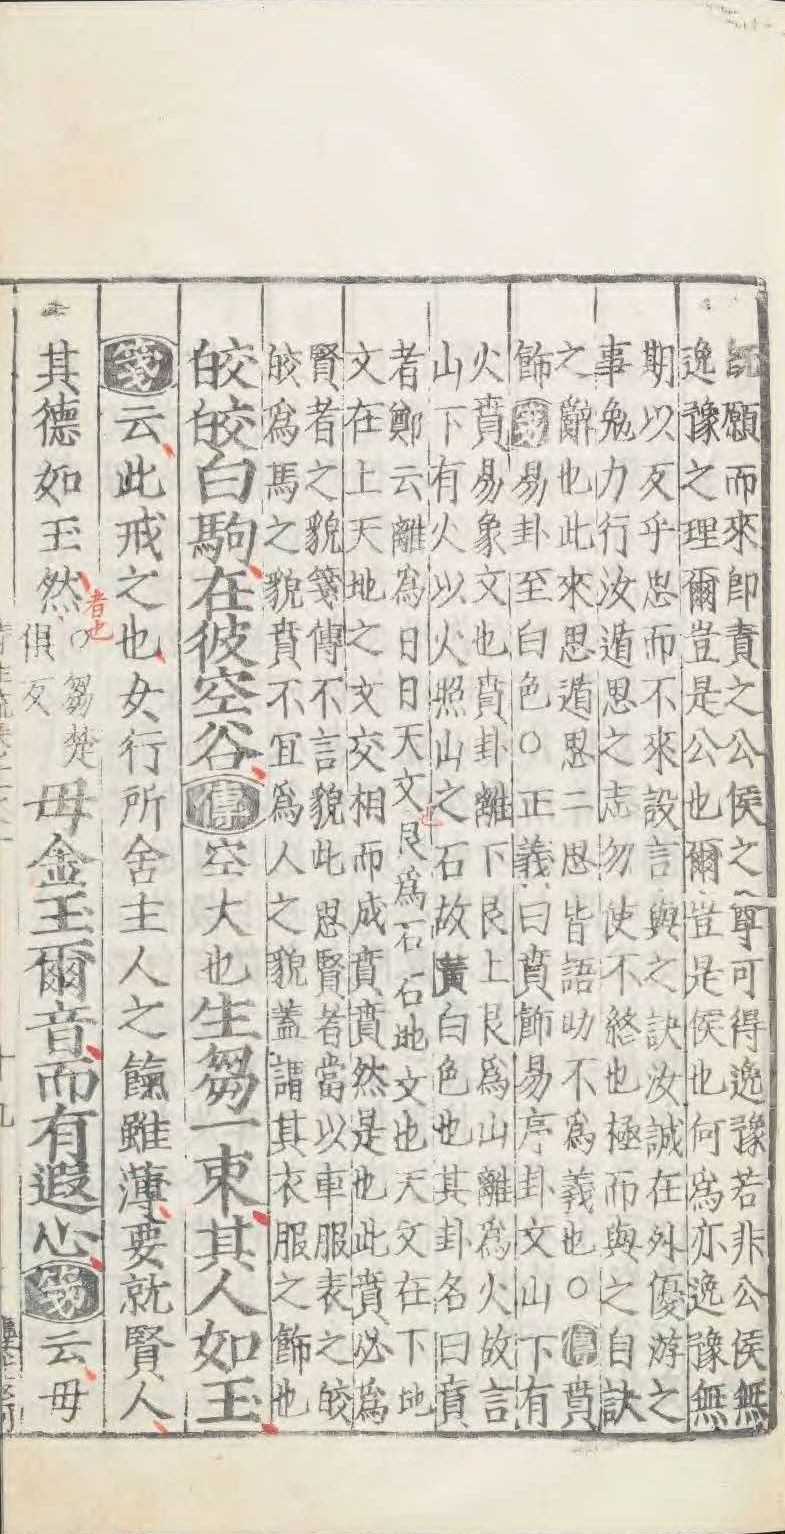 既願而來即責之公侯之尊可得逸豫若非公侯無
逸豫之理爾豈是公也爾豈是侯也何爲亦逸豫無
期以反乎忠而不來設言與之訣汝誠在外優游之
事勉力行汝遁思之志勿使不終也極而與之自訣
之辭也此來思遁思二思皆語助不爲義也○傳賁
飾箋易卦至白色○正義曰賁飾易序卦文山下有
火賁易象文也賁卦離下艮上艮爲山離爲火故言
山下有火以火照山之石故黃白色也其卦名曰賁
也
者鄭云離爲日日天文艮爲石石地文也天文在下地
文在上天地之文交相而成賁賁然是也此賁必爲
賢者之貌箋傳不言貌此思賢者當以車服表之皎
皎爲馬之貌賁不冝爲人之貌蓋謂其衣服之飾也
皎皎白駒在彼空谷傳空大也生芻一束其人如玉
箋云此戒之也女行所舍主人之餼雖薄要就賢人
者也
其德如玉然○芻楚俱反毋金玉爾音而有遐心箋云毋